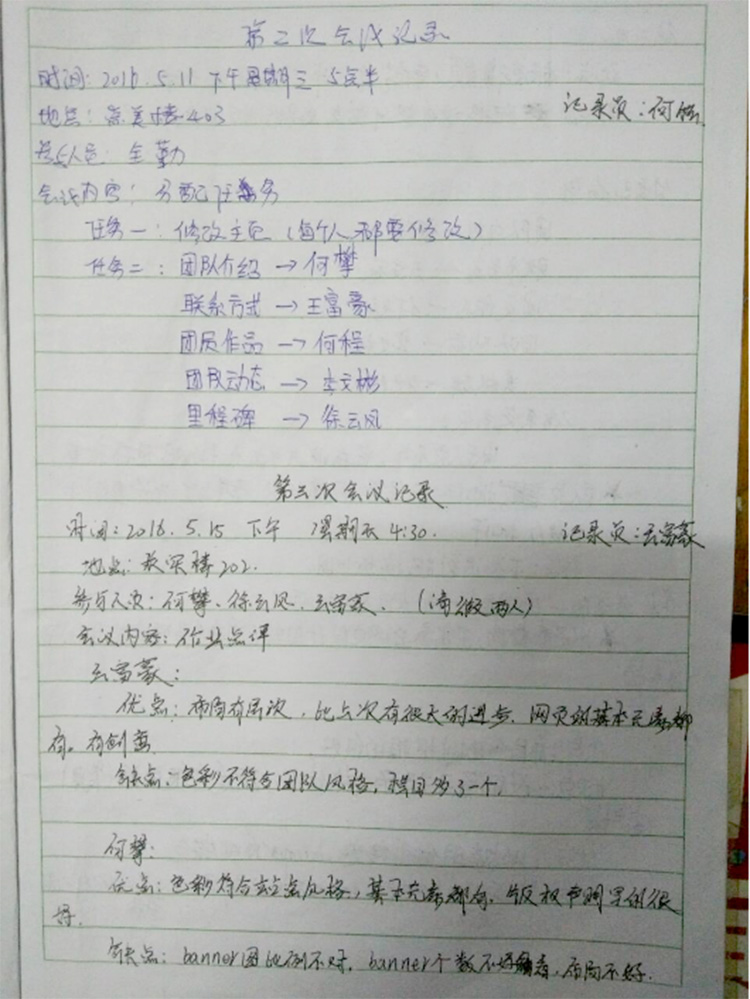 第二次会议记录
时间：2016.5.11 下午星期三 5点半
记录员：何
地点：崇美楼403
参与人员：全勤
会议内容：分配任务
任务一：修改主页（每个人都要修改）
任务二：团队介绍→何攀
联系方式→王富豪
团员作品→何程
团队动态→李文彬
里程碑→徐云风
第三次会议记录
时间：2016.5.15 下午 星期天 4:30.
记录员：王富豪
地点：教实楼202.
参与人员：何攀、徐云风、王富豪.（请假两人）
会议内容：作业点评
王富豪：
优点：布局有层次，比上次有很大的进步，网页的基本元素都
有。有创意
缺点：色彩不符合团队风格，栏目多了一个.
何攀：
优点：色彩符合站点风格，基本元素都有，版权声明写的很
好.
缺点：banner图比例不对，banner个数不好，布局不好.